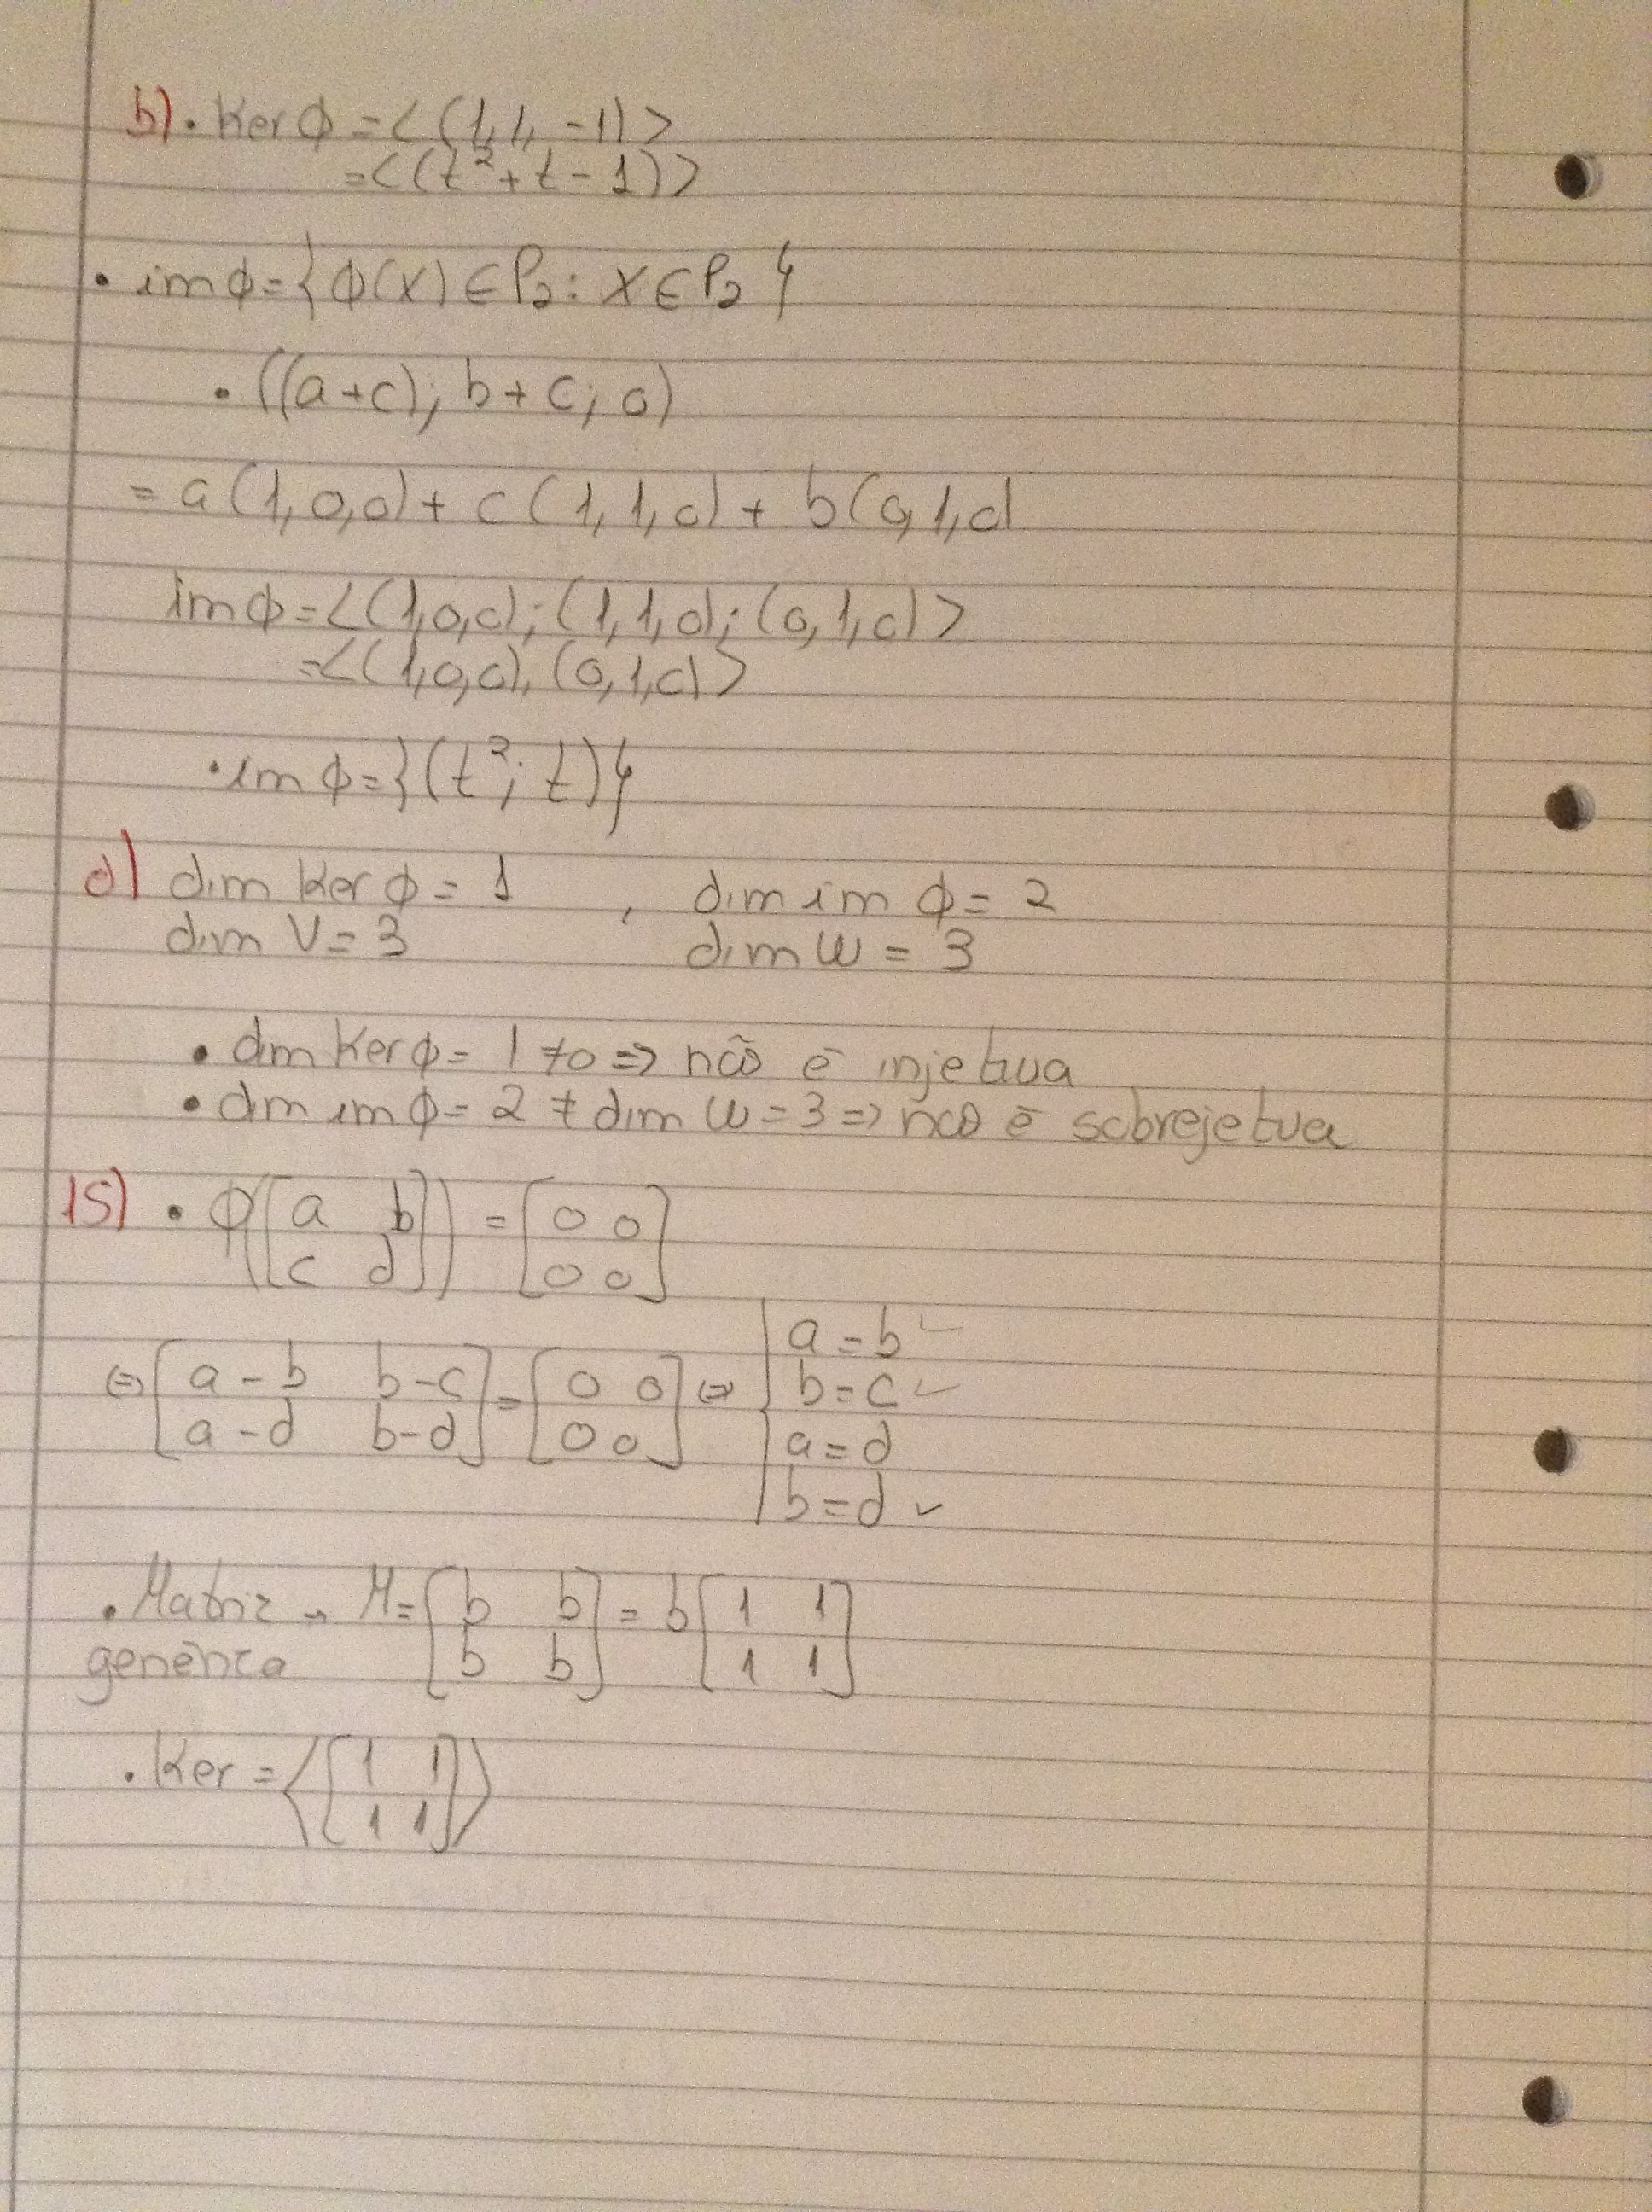 b) • Ker ϕ = < (1, 1, -1) >
= < (t² + t - 1) >
• im ϕ = { ϕ(x) ∈ P₂ : x ∈ P₂ }
• ((a+c); b+c; 0)
= a(1,0,0) + c(1,1,0) + b(0,1,0
im ϕ = < (1,0,0); (1,1,0); (0,1,0) >
= < (1,0,0), (0,1,0) >
• im ϕ = {(t²; t)}
d) dim Ker ϕ = 1 , dim im ϕ = 2
dim V = 3 dim W = 3
• dim Ker ϕ = 1 ≠ 0 => não é injetiva
• dim im ϕ = 2 ≠ dim W = 3 => não é sobrejetiva
15) • ϕ([a b; c d]) = [0 0; 0 0]
⇔ [a-b b-c; a-d b-d] = [0 0; 0 0] ⇔ { a = b ✓
b = c ✓
a = d
b = d ✓
• Matriz → M = [b b; b b] = b [1 1; 1 1]
genérica
• Ker = ⟨[1 1; 1 1]⟩